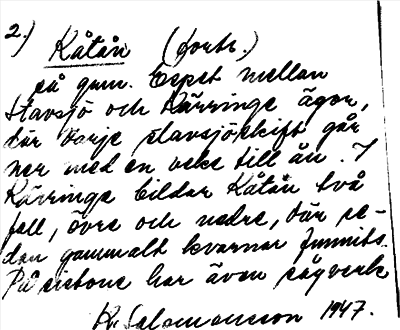 2.) Kåtån (forts.)
på gam. Espet mellan
Stavsjö och Kärringe ägor,
där varje stavsjöskift går
ner med en veke till ån. I
Kärringe bildar Kåtån två
fall, övre och nedre, där se-
dan gammalt kvarnar funnits.
På sistone har även sågverk
K. Salomonsson 1947.